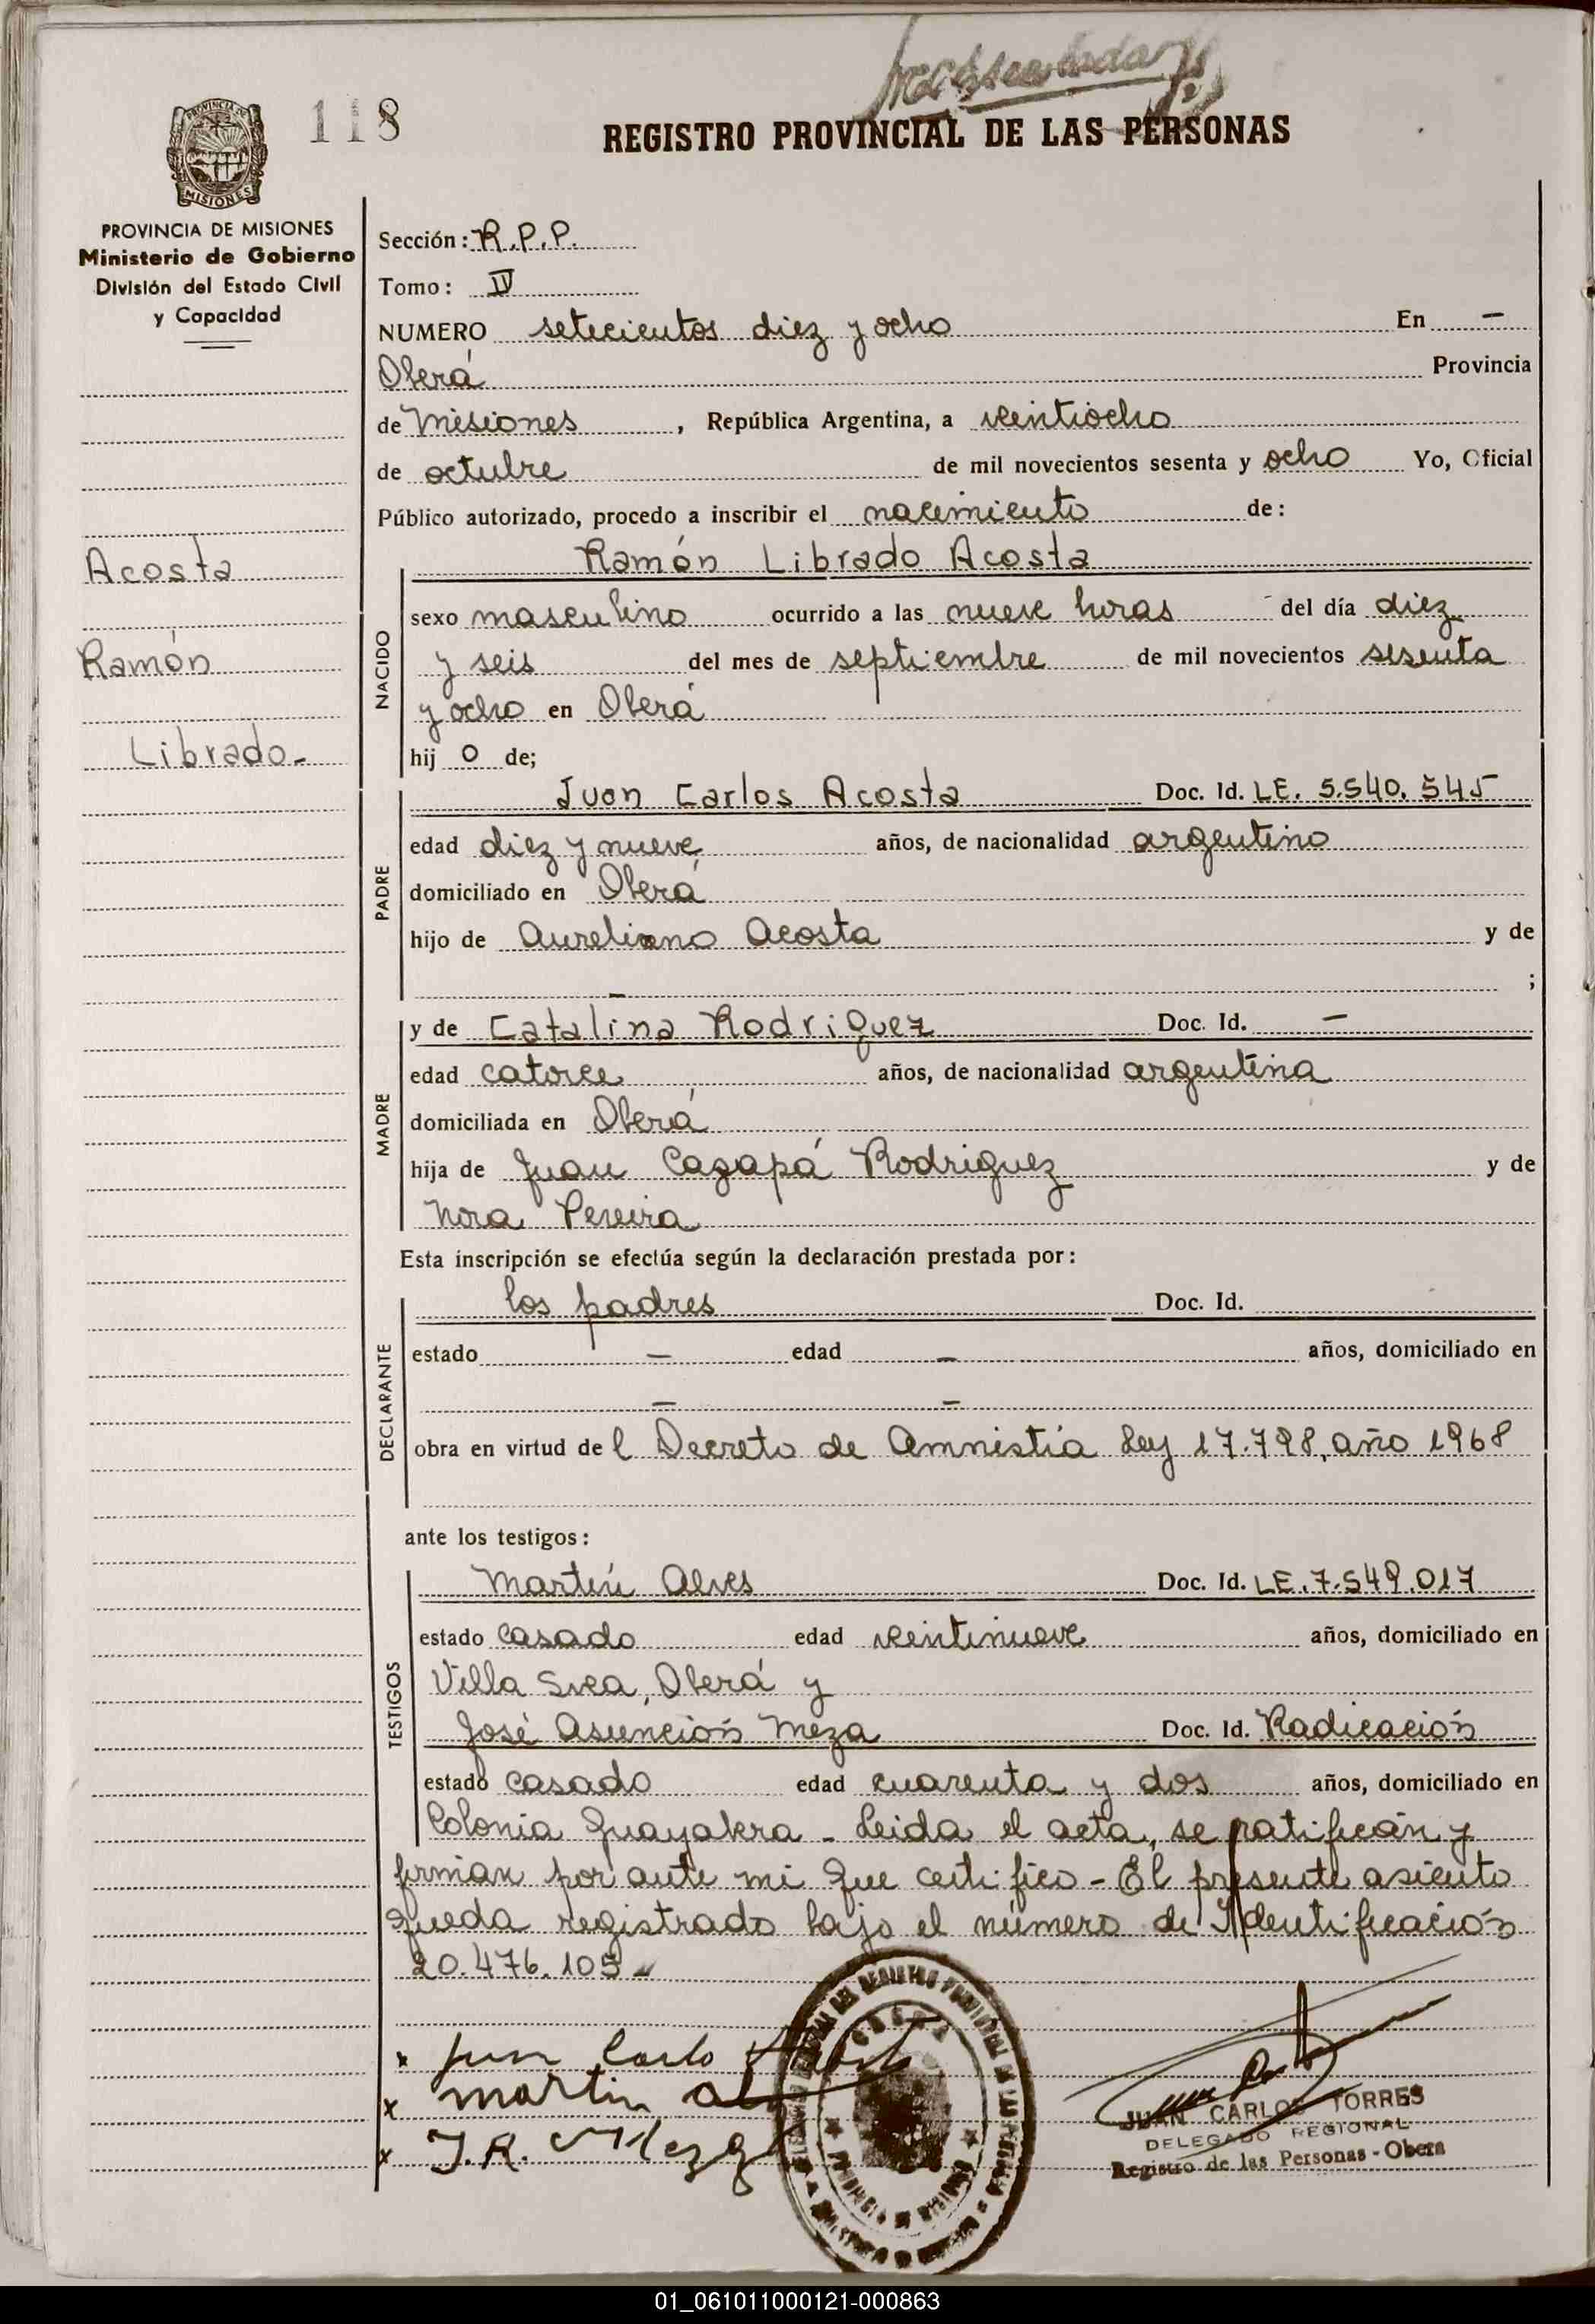 118
REGISTRO PROVINCIAL DE LAS PERSONAS
PROVINCIA DE MISIONES
Ministerio de Gobierno
División del Estado Civil
y Capacidad
Acosta
Ramón
Librado.-
Sección: R.P.P.
Tomo: IV
NUMERO setecientos diez y ocho En -
Oberá Provincia
de Misiones, República Argentina, a veintiocho
de octubre de mil novecientos sesenta y ocho Yo, Oficial
Público autorizado, procedo a inscribir el nacimiento de:
Ramón Librado Acosta
NACIDO
sexo masculino ocurrido a las nueve horas - del día diez
y seis del mes de septiembre de mil novecientos sesenta
y ocho en Oberá
hij o de;
PADRE
Juan Carlos Acosta Doc. Id. LE. 5.540.545
edad diez y nueve años, de nacionalidad argentino
domiciliado en Oberá
hijo de Aureliano Acosta y de
- ;
MADRE
y de Catalina Rodriguez Doc. Id. -
edad catorce años, de nacionalidad argentina
domiciliada en Oberá
hija de Juan Cagapá Rodriguez y de
Nora Pereira
Esta inscripción se efectúa según la declaración prestada por:
DECLARANTE
los padres Doc. Id.
estado - edad - años, domiciliado en
- -
obra en virtud de l Decreto de Amnistía Ley 17.798, año 1968
ante los testigos:
TESTIGOS
Martín Alves Doc. Id. LE. 7.549.017
estado casado edad veintinueve años, domiciliado en
Villa Svea, Oberá y
José Asunción Meza Doc. Id. Radicación
estado casado edad cuarenta y dos años, domiciliado en
Colonia Guayabera - Leida el acta, se ratifican y
firman por ante mi que certifico - El presente asiento
queda registrado bajo el número de Identificación
20.476.105
x Juan Carlo
x Martin
x J.R. Meza
JUAN CARLOS TORRES
DELEGADO REGIONAL
Registro de las Personas - Obera
01_061011000121-000863